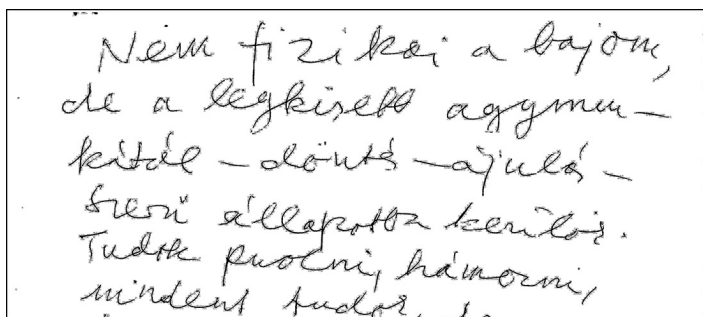 Nem fizikai a bajom,
de a legkisebb agymun-
kától - döntés - ájulás-
szerű állapotba kerülök.
Tudok pucolni, hámozni,
mindent tudok,